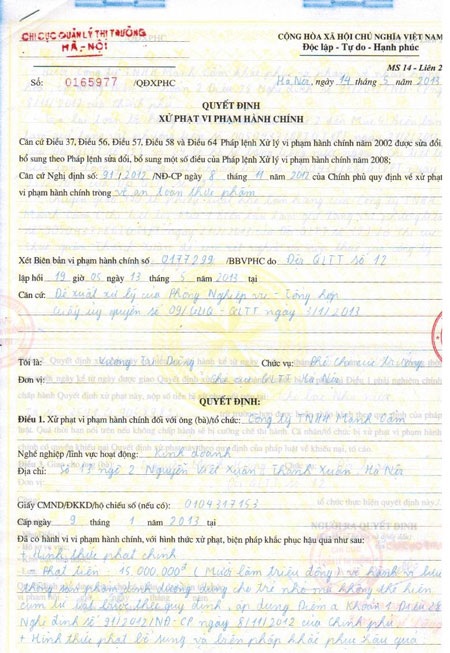 CHI CỤC QUẢN LÝ THỊ TRƯỜNG
HÀ-NỘI
CỘNG HÒA XÃ HỘI CHỦ NGHĨA VIỆT NAM
Độc lập - Tự do - Hạnh phúc
MS 14 - Liên 2
Số: 0165977 /QĐXPHC
Hà Nội, ngày 14 tháng 5 năm 2013
QUYẾT ĐỊNH
XỬ PHẠT VI PHẠM HÀNH CHÍNH
Căn cứ Điều 37, Điều 56, Điều 57, Điều 58 và Điều 64 Pháp lệnh Xử lý vi phạm hành chính năm 2002 được sửa đổi,
bổ sung theo Pháp lệnh sửa đổi, bổ sung một số điều của Pháp lệnh Xử lý vi phạm hành chính năm 2008;
Căn cứ Nghị định số: 91/2012/NĐ-CP ngày 8 tháng 11 năm 2012 của Chính phủ quy định về xử phạt
vi phạm hành chính trong về an toàn thực phẩm
Xét Biên bản vi phạm hành chính số 0177299 /BBVPHC do Đội QLTT số 12
lập hồi 19 giờ 05 ngày 13 tháng 5 năm 2013 tại
Căn cứ: Đề xuất xử lý của Phòng Nghiệp vụ - Tổng hợp
Giấy uỷ quyền số 09/GUQ-QLTT ngày 3/1/2013
Tôi là: Vương Trí Dũng Chức vụ: Phó Chi cục Trưởng
Đơn vị: Chi cục QLTT Hà Nội
QUYẾT ĐỊNH:
Điều 1. Xử phạt vi phạm hành chính đối với ông (bà)/tổ chức: Công ty TNHH Mạnh Cầm
Nghề nghiệp/lĩnh vực hoạt động: Kinh doanh
Địa chỉ: Số 13 ngõ 2 Nguyễn Viết Xuân, Thanh Xuân, Hà Nội
Giấy CMND/ĐKKD/hộ chiếu số (nếu có): 0104317153
Cấp ngày 9 tháng 1 năm 2013 tại
Đã có hành vi vi phạm hành chính, với hình thức xử phạt, biện pháp khắc phục hậu quả như sau:
+ Hình thức phạt chính
- Phạt tiền: 15.000.000đ (Mười lăm triệu đồng) về hành vi lưu
thông sản phẩm dinh dưỡng dùng cho trẻ nhỏ mà không thể hiện
cụm từ bắt buộc theo quy định, áp dụng Điểm a Khoản 1 Điều 28
Nghị định số 91/2012/NĐ-CP ngày 8/11/2012 của Chính phủ
+ Hình thức phạt bổ sung và biện pháp khắc phục hậu quả: